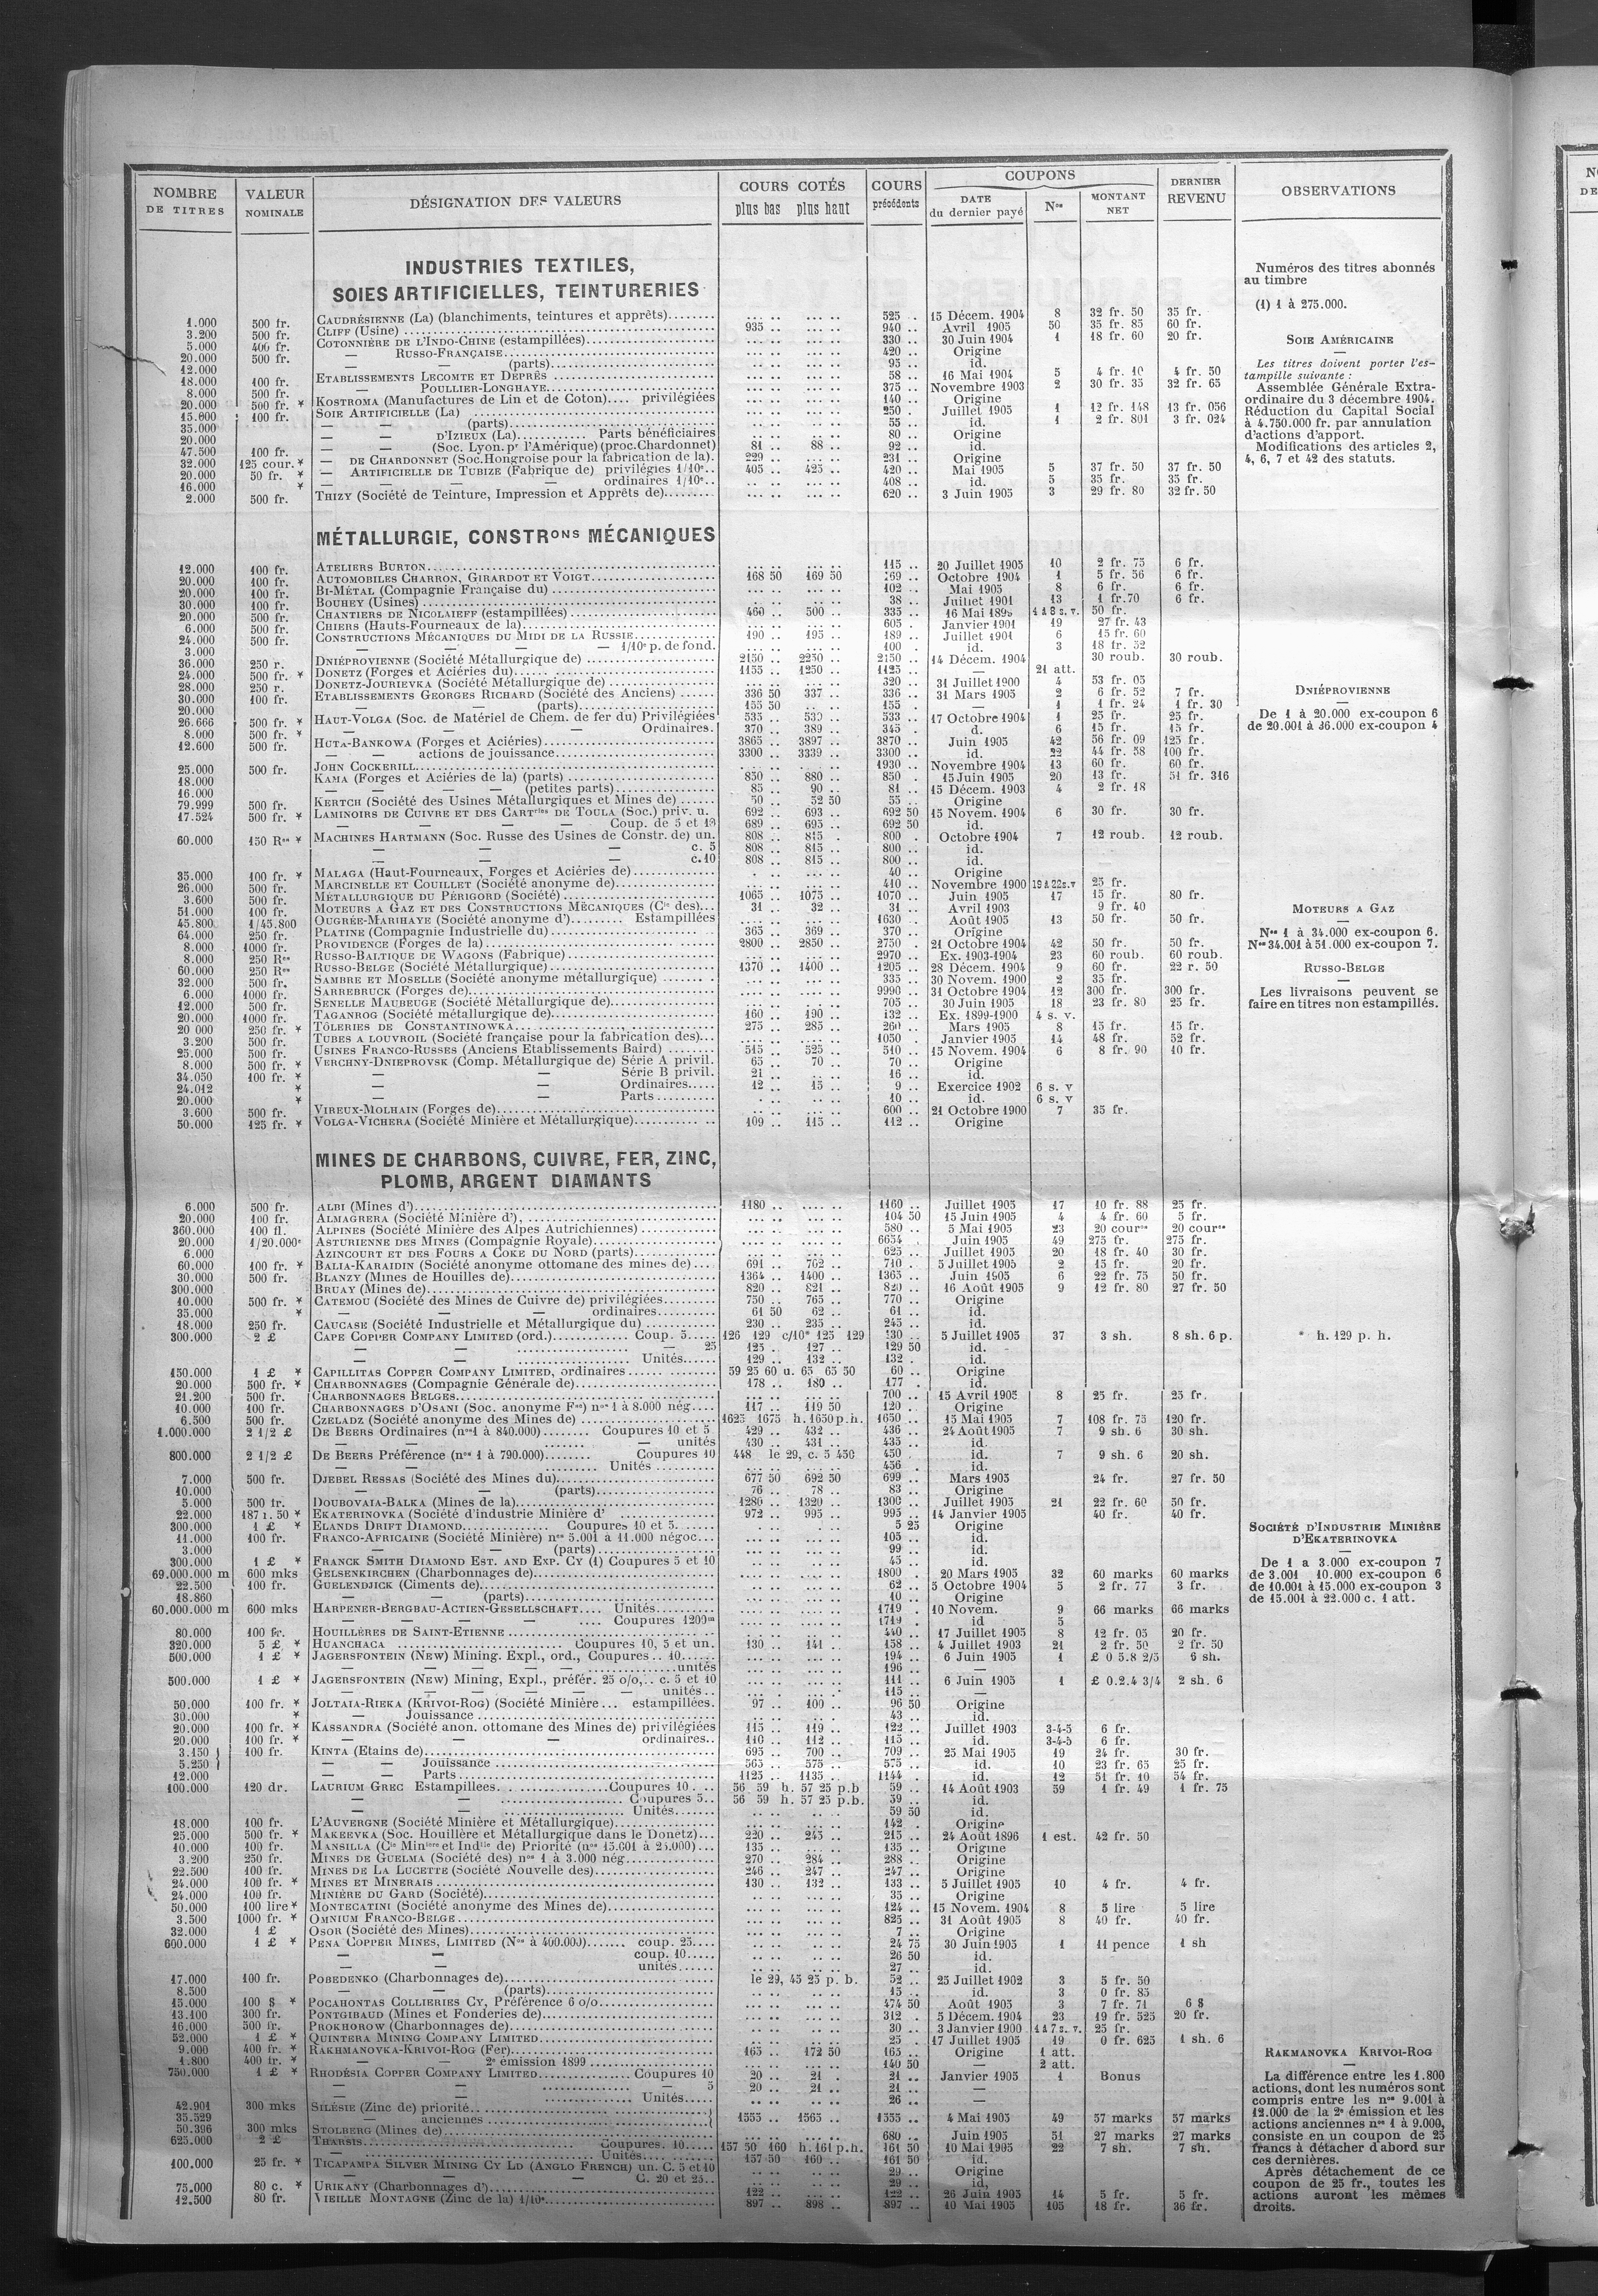 NOMBRE DE TITRES | VALEUR NOMINALE | DÉSIGNATION DES VALEURS | COURS COTÉS plus bas plus haut | COURS précédents | COUPONS DATE du dernier payé | Nos | MONTANT NET | DERNIER REVENU | OBSERVATIONS
INDUSTRIES TEXTILES,
SOIES ARTIFICIELLES, TEINTURERIES
1.000 500 fr. CAUDRÉSIENNE (La) (blanchiments, teintures et apprêts) 525 15 Décem. 1904 8 32 fr. 50 35 fr.
3.200 500 fr. CLIFF (Usine) 935 940 Avril 1905 50 35 fr. 85 60 fr.
5.000 400 fr. COTONNIÈRE DE L'INDO-CHINE (estampillées) 330 30 Juin 1904 1 18 fr. 60 20 fr.
20.000 500 fr. — RUSSO-FRANÇAISE 420 Origine
12.000 — — (parts) 95 id.
18.000 100 fr. ETABLISSEMENTS LECOMTE ET DEPRÊS 58 16 Mai 1904 5 4 fr. 10 4 fr. 50
8.000 500 fr. — POULLIER-LONGHAYE 375 Novembre 1903 2 30 fr. 35 32 fr. 65
20.000 500 fr. * KOSTROMA (Manufactures de Lin et de Coton) privilégiées 140 Origine
15.600 100 fr. SOIE ARTIFICIELLE (La) 250 Juillet 1905 1 12 fr. 148 13 fr. 056
35.000 — — (parts) 55 id. 1 2 fr. 801 3 fr. 024
20.000 — — D'IZIEUX (La) Parts bénéficiaires 80 Origine
47.500 100 fr. — — (Soc. Lyon. pr l'Amérique) (proc. Chardonnet) 81 88 92 id.
32.000 125 cour. * — DE CHARDONNET (Soc. Hongroise pour la fabrication de la) 229 231 Origine
20.000 50 fr. * — ARTIFICIELLE DE TUBIZE (Fabrique de) privilégies 1/10e 405 425 420 Mai 1905 5 37 fr. 50 37 fr. 50
16.000 * — — — — ordinaires 1/10e 408 id. 5 35 fr. 35 fr.
2.000 500 fr. THIZY (Société de Teinture, Impression et Apprêts de) 620 3 Juin 1905 3 29 fr. 80 32 fr. 50
Numéros des titres abonnés
au timbre
(1) 1 à 275.000.
SOIE AMÉRICAINE
—
Les titres doivent porter l'es-
tampille suivante :
Assemblée Générale Extra-
ordinaire du 3 décembre 1904.
Réduction du Capital Social
à 4.750.000 fr. par annulation
d'actions d'apport.
Modifications des articles 2,
4, 6, 7 et 42 des statuts.
MÉTALLURGIE, CONSTRons MÉCANIQUES
12.000 100 fr. ATELIERS BURTON 115 20 Juillet 1905 10 2 fr. 75 6 fr.
20.000 100 fr. AUTOMOBILES CHARRON, GIRARDOT ET VOIGT 168 50 169 50 169 Octobre 1904 1 5 fr. 56 6 fr.
20.000 100 fr. BI-MÉTAL (Compagnie Française du) 102 Mai 1905 8 6 fr. 6 fr.
30.000 100 fr. BOUHEY (Usines) 38 Juillet 1901 13 1 fr. 70 6 fr.
20.000 500 fr. CHANTIERS DE NICOLAIEFF (estampillées) 460 500 335 16 Mai 1899 1 à 8 s. v. 50 fr.
6.000 500 fr. CHIERS (Hauts-Fourneaux de la) 605 Janvier 1901 19 27 fr. 43
24.000 500 fr. CONSTRUCTIONS MÉCANIQUES DU MIDI DE LA RUSSIE 190 195 189 Juillet 1901 6 15 fr. 60
3.000 — — — — 1/10e p. de fond. 100 id. 3 18 fr. 52
36.000 250 r. DNIÉPROVIENNE (Société Métallurgique de) 2150 2250 2150 14 Décem. 1904 30 roub. 30 roub.
24.000 500 fr. * DONETZ (Forges et Aciéries du) 1155 1250 1125 21 att.
28.000 250 r. DONETZ-JOURIEVKA (Société Métallurgique de) 320 31 Juillet 1900 4 53 fr. 05
30.000 100 fr. ETABLISSEMENTS GEORGES RICHARD (Société des Anciens) 336 50 337 336 31 Mars 1905 2 6 fr. 52 7 fr.
20.000 — — (parts) 155 50 155 — 1 1 fr. 24 1 fr. 30
26.666 500 fr. * HAUT-VOLGA (Soc. de Matériel de Chem. de fer du) Privilégiées 535 539 533 17 Octobre 1904 1 25 fr. 25 fr.
8.000 500 fr. * — — — Ordinaires. 370 389 345 d. 6 15 fr. 15 fr.
12.600 500 fr. HUTA-BANKOWA (Forges et Aciéries) 3865 3897 3870 Juin 1905 42 56 fr. 09 125 fr.
— — actions de jouissance 3300 3339 3300 id. 22 44 fr. 58 100 fr.
25.000 500 fr. JOHN COCKERILL 1930 Novembre 1904 13 60 fr. 60 fr.
18.000 KAMA (Forges et Aciéries de la) (parts) 850 880 850 15 Juin 1905 20 13 fr. 51 fr. 316
16.000 — — — — (petites parts) 85 90 81 15 Décem. 1903 4 2 fr. 18
79.999 500 fr. KERTCH (Société des Usines Métallurgiques et Mines de) 50 52 50 55 Origine
17.524 500 fr. * LAMINOIRS DE CUIVRE ET DES CARTries DE TOULA (Soc.) priv. u. 692 693 692 50 15 Novem. 1904 6 30 fr. 30 fr.
— — — Coup. de 5 et 10 689 695 692 50 id.
60.000 150 Res * MACHINES HARTMANN (Soc. Russe des Usines de Constr. de) un. 808 815 800 Octobre 1904 7 12 roub. 12 roub.
— — — c. 5 808 815 800 id.
— — — c. 10 808 815 800 id.
35.000 100 fr. * MALAGA (Haut-Fourneaux, Forges et Aciéries de) 40 Origine
26.000 500 fr. MARCINELLE ET COUILLET (Société anonyme de) 410 Novembre 1900 19 à 22 s. v 25 fr.
3.600 500 fr. MÉTALLURGIQUE DU PÉRIGORD (Société) 1065 1075 1070 Juin 1905 17 15 fr. 80 fr.
51.000 100 fr. MOTEURS A GAZ ET DES CONSTRUCTIONS MÉCANIQUES (Cie des) 31 32 31 Avril 1903 9 fr. 40
45.800 1/45.800 OUGRÉE-MARIHAYE (Société anonyme d') Estampillées 1630 Août 1905 13 50 fr. 50 fr.
64.000 250 fr. PLATINE (Compagnie Industrielle du) 365 369 370 Origine
8.000 1000 fr. PROVIDENCE (Forges de la) 2800 2850 2750 21 Octobre 1904 42 50 fr. 50 fr.
8.000 250 Res RUSSO-BALTIQUE DE WAGONS (Fabrique) 2970 Ex. 1903-1904 23 60 roub. 60 roub.
60.000 250 Res RUSSO-BELGE (Société Métallurgique) 1370 1400 1205 28 Décem. 1904 9 60 fr. 22 r. 50
32.000 500 fr. SAMBRE ET MOSELLE (Société anonyme métallurgique) 335 30 Novem. 1900 2 35 fr.
6.000 1000 fr. SARREBRUCK (Forges de) 9990 31 Octobre 1904 12 300 fr. 300 fr.
12.000 500 fr. SENELLE MAUBEUGE (Société Métallurgique de) 705 30 Juin 1905 18 23 fr. 80 25 fr.
20.000 1000 fr. TAGANROG (Société métallurgique de) 160 190 132 Ex. 1899-1900 4 s. v.
20 000 250 fr. * TÔLERIES DE CONSTANTINOWKA 275 285 260 Mars 1905 8 15 fr. 15 fr.
3.200 500 fr. TUBES A LOUVROIL (Société française pour la fabrication des) 1050 Janvier 1905 14 48 fr. 52 fr.
25.000 500 fr. USINES FRANCO-RUSSES (Anciens Etablissements Baird) 515 525 510 15 Novem. 1904 6 8 fr. 90 10 fr.
8.000 500 fr. * VERCHNY-DNIEPROVSK (Comp. Métallurgique de) Série A privil. 65 70 70 Origine
34.050 100 fr. * — — Série B privil. 21 16 id.
24.012 * — — Ordinaires 12 15 9 Exercice 1902 6 s. v
20.000 * — — Parts 10 id. 6 s. v
3.600 500 fr. VIREUX-MOLHAIN (Forges de) 600 21 Octobre 1900 7 35 fr.
50.000 125 fr. * VOLGA-VICHERA (Société Minière et Métallurgique) 109 115 112 Origine
DNIÉPROVIENNE
—
De 1 à 20.000 ex-coupon 6
de 20.001 à 36.000 ex-coupon 4
MOTEURS A GAZ
—
Nos 1 à 34.000 ex-coupon 6.
Nos 34.001 à 51.000 ex-coupon 7.
RUSSO-BELGE
—
Les livraisons peuvent se
faire en titres non estampillés.
MINES DE CHARBONS, CUIVRE, FER, ZINC,
PLOMB, ARGENT DIAMANTS
6.000 500 fr. ALBI (Mines d') 1180 1160 Juillet 1905 17 10 fr. 88 25 fr.
20.000 100 fr. ALMAGRERA (Société Minière d') 104 50 15 Juin 1905 4 4 fr. 60 5 fr.
360.000 100 fl. ALPINES (Société Minière des Alpes Autrichiennes) 580 5 Mai 1905 23 20 cour 20 cour
20.000 1/20.000e ASTURIENNE DES MINES (Compagnie Royale) 6654 Juin 1905 49 275 fr. 275 fr.
6.000 AZINCOURT ET DES FOURS A COKE DU NORD (parts) 625 Juillet 1905 20 18 fr. 40 30 fr.
60.000 100 fr. * BALIA-KARAIDIN (Société anonyme ottomane des mines de) 691 702 710 5 Juillet 1905 2 15 fr. 20 fr.
30.000 500 fr. BLANZY (Mines de Houilles de) 1364 1400 1365 Juin 1905 6 22 fr. 75 50 fr.
300.000 BRUAY (Mines de) 820 821 820 16 Août 1905 9 12 fr. 80 27 fr. 50
10.000 500 fr. * CATEMOU (Société des Mines de Cuivre de) privilégiées 750 765 770 Origine
35.000 * — — — ordinaires 61 50 62 61 id.
18.000 250 fr. CAUCASE (Société Industrielle et Métallurgique du) 230 235 245 id.
300.000 2 £ CAPE COPPER COMPANY LIMITED (ord.) Coup. 5 126 129 c/10* 125 129 130 5 Juillet 1905 37 3 sh. 8 sh. 6 p. * h. 129 p. h.
— — — 25 125 127 129 50 id.
— — Unités 129 132 132 id.
150.000 1 £ * CAPILLITAS COPPER COMPANY LIMITED, ordinaires 59 25 60 u. 65 65 50 60 Origine
20.000 500 fr. * CHARBONNAGES (Compagnie Générale de) 178 180 177 id.
21.200 500 fr. CHARBONNAGES BELGES 700 15 Avril 1905 8 25 fr. 25 fr.
10.000 100 fr. CHARBONNAGES D'OSANI (Soc. anonyme Fse) nos 1 à 8.000 nég. 117 119 50 120 Origine
6.500 500 fr. CZELADZ (Société anonyme des Mines de) 1625 1675 h. 1650 p. h. 1650 15 Mai 1905 7 108 fr. 75 120 fr.
1.000.000 2 1/2 £ DE BEERS Ordinaires (nos 1 à 840.000) Coupures 10 et 5 429 432 436 24 Août 1905 7 9 sh. 6 30 sh.
— — — unités 430 431 435 id.
800.000 2 1/2 £ DE BEERS Préférence (nos 1 à 790.000) Coupures 10 448 le 29, c. 5 450 450 id. 7 9 sh. 6 20 sh.
— — Unités 456 id.
7.000 500 fr. DJEBEL RESSAS (Société des Mines du) 677 50 692 50 699 Mars 1905 24 fr. 27 fr. 50
10.000 — — (parts) 76 78 83 Origine
5.000 500 fr. DOUBOVAIA-BALKA (Mines de la) 1280 1320 1300 Juillet 1905 21 22 fr. 60 50 fr.
22.000 187 r. 50 * EKATERINOVKA (Société d'industrie Minière d' 972 995 995 14 Janvier 1905 40 fr. 40 fr.
300.000 1 £ * ELANDS DRIFT DIAMOND Coupures 10 et 5. 5 25 Origine
11.000 100 fr. FRANCO-AFRICAINE (Société Minière) nos 5.001 à 11.000 négoc. 105 id.
3.000 — — (parts) 99 id.
300.000 1 £ * FRANCK SMITH DIAMOND EST. AND EXP. CY (1) Coupures 5 et 10 45 id.
69.000.000 m 600 mks GELSENKIRCHEN (Charbonnages de) 1800 20 Mars 1905 32 60 marks 60 marks
22.500 100 fr. GUELENDJICK (Ciments de) 62 5 Octobre 1904 5 2 fr. 77 3 fr.
18.860 — — (parts) 10 Origine
60.000.000 m 600 mks HARPENER-BERGBAU-ACTIEN-GESELLSCHAFT Unités 1719 10 Novem. 9 66 marks 66 marks
— — — — Coupures 1200 1719 id 5
80.000 100 fr. HOUILLÈRES DE SAINT-ETIENNE 440 17 Juillet 1905 8 12 fr. 05 20 fr.
320.000 5 £ * HUANCHACA Coupures 10, 5 et un. 130 141 158 4 Juillet 1903 21 2 fr. 50 2 fr. 50
500.000 1 £ * JAGERSFONTEIN (NEW) Mining. Expl., ord., Coupures 10 194 6 Juin 1905 1 £ 0 5.8 2/5 6 sh.
— — — — unités 196 —
500.000 1 £ * JAGERSFONTEIN (NEW) Mining, Expl., préfér. 25 o/o, c. 5 et 10 111 6 Juin 1905 1 £ 0.2.4 3/4 2 sh. 6
— — — — unités 115 —
50.000 100 fr. * JOLTAIA-RIEKA (KRIVOI-ROG) (Société Minière estampillées. 97 100 96 50 Origine
30.000 * — Jouissance 43 id.
20.000 100 fr. * KASSANDRA (Société anon. ottomane des Mines de) privilégiées 115 119 122 Juillet 1903 3-4-5 6 fr.
20.000 100 fr. * — — — ordinaires 110 112 115 id. 3-4-5 6 fr.
3.150 100 fr. KINTA (Etains de) 695 700 709 25 Mai 1905 19 24 fr. 30 fr.
5.250 — — Jouissance 565 575 575 id. 10 23 fr. 65 25 fr.
12.000 — — Parts 1125 1135 1144 id. 12 51 fr. 10 54 fr.
100.000 120 dr. LAURIUM GREC Estampillees Coupures 10 56 59 h. 57 25 p.b 59 14 Août 1903 59 1 fr. 49 1 fr. 75
— — Coupures 5 56 59 h. 57 25 p.b. 59 id.
— — Unités 59 50 id.
18.000 100 fr. L'AUVERGNE (Société Minière et Métallurgique) 142 Origine
25.000 500 fr. * MAKEEVKA (Soc. Houillère et Métallurgique dans le Donetz) 220 245 215 24 Août 1896 1 est. 42 fr. 50
10.000 100 fr. MANSILLA (Cie Minière et Indlle de) Priorité (nos 15.001 à 25.000) 135 135 Origine
3.200 250 fr. MINES DE GUELMA (Société des) nos 1 à 3.000 nég 270 284 288 Origine
22.500 100 fr. MINES DE LA LUCETTE (Société Nouvelle des) 246 247 247 Origine
24.000 100 fr. * MINES ET MINERAIS 130 132 133 5 Juillet 1905 10 4 fr. 4 fr.
24.000 100 fr. MINIÈRE DU GARD (Société) 35 Origine
50.000 100 lire * MONTECATINI (Société anonyme des Mines de) 124 15 Novem. 1904 8 5 lire 5 lire
3.500 1000 fr. * OMNIUM FRANCO-BELGE 825 31 Août 1905 8 40 fr. 40 fr.
32.000 1 £ OSOR (Société des Mines) 7 Origine
600.000 1 £ * PENA COPPER MINES, LIMITED (Nos à 400.000) coup. 25 24 75 30 Juin 1905 1 11 pence 1 sh
— — coup. 10 26 50 id.
— — unités 27 id.
17.000 100 fr. POBEDENKO (Charbonnages de) le 29, 45 25 p. b. 52 25 Juillet 1902 3 5 fr. 50
8.500 — — (parts) 15 id. 3 0 fr. 85
15.000 100 $ * POCAHONTAS COLLIERIES CY, Préférence 6 o/o 474 50 Août 1905 3 7 fr. 71 6 $
13.100 300 fr. PONTGIBAUD (Mines et Fonderies de) 312 5 Décem. 1904 23 19 fr. 525 20 fr.
16.000 500 fr. PROKHOROW (Charbonnages de) 30 3 Janvier 1900 1 à 7 s. v. 25 fr.
52.000 1 £ * QUINTERA MINING COMPANY LIMITED 25 17 Juillet 1905 19 0 fr. 625 1 sh. 6
9.000 400 fr. * RAKHMANOVKA-KRIVOI-ROG (Fer) 165 172 50 165 Origine 1 att.
1.800 400 fr. * — — 2e émission 1899 140 50 — 2 att.
750.000 1 £ * RHODÉSIA COPPER COMPANY LIMITED Coupures 10 20 21 21 Janvier 1905 1 Bonus
— — — 5 20 21 21 —
— — Unités 26 —
42.901 300 mks SILÉSIE (Zinc de) priorité
35.529 — anciennes 1555 1565 1555 4 Mai 1905 49 57 marks 57 marks
50.396 300 mks STOLBERG (Mines de) 680 Juin 1905 51 27 marks 27 marks
625.000 2 £ THARSIS Coupures. 10 157 50 160 h. 161 p.h. 161 50 10 Mai 1905 22 7 sh. 7 sh.
Unités 157 50 160 161 50 id.
100.000 25 fr. * TICAPAMPA SILVER MINING CY LD (ANGLO FRENCH) un. C. 5 et 10 29 Origine
— — — C. 20 et 25 29 id.
75.000 80 c. * URIKANY (Charbonnages d') 122 122 26 Juin 1905 14 5 fr. 5 fr.
12.500 80 fr. VIEILLE MONTAGNE (Zinc de la) 1/10e 897 898 897 10 Mai 1905 105 18 fr. 36 fr.
SOCIÉTÉ D'INDUSTRIE MINIÈRE
D'EKATERINOVKA
—
De 1 a 3.000 ex-coupon 7
de 3.001 10.000 ex-coupon 6
de 10.001 à 15.000 ex-coupon 3
de 15.001 à 22.000 c. 1 att.
RAKMANOVKA KRIVOI-ROG
—
La différence entre les 1.800
actions, dont les numéros sont
compris entre les nos 9.001 à
12.000 de la 2e émission et les
actions anciennes nos 1 à 9.000,
consiste en un coupon de 25
francs à détacher d'abord sur
ces dernières.
Après détachement de ce
coupon de 25 fr., toutes les
actions auront les mêmes
droits.